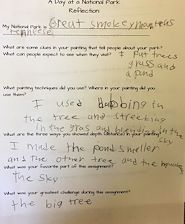 A Day at a National Park
Reflection
My National Park is Great smokey mountains
tennessee
What are some clues in your painting that tell people about your park?
What can people expect to see when they visit? I put trees
grass and
a pond
What painting techniques did you use? Where in your painting did you
use them?
I used dabbing in
the tree and streeting
in the gras and blending in the sky
What are the three ways you showed depth/distance in your painting
I made the pond smaller
and the other tree and the
What was your favorite part of the assignment?
the sky
What was your greatest challenge during this assignment?
the big tree